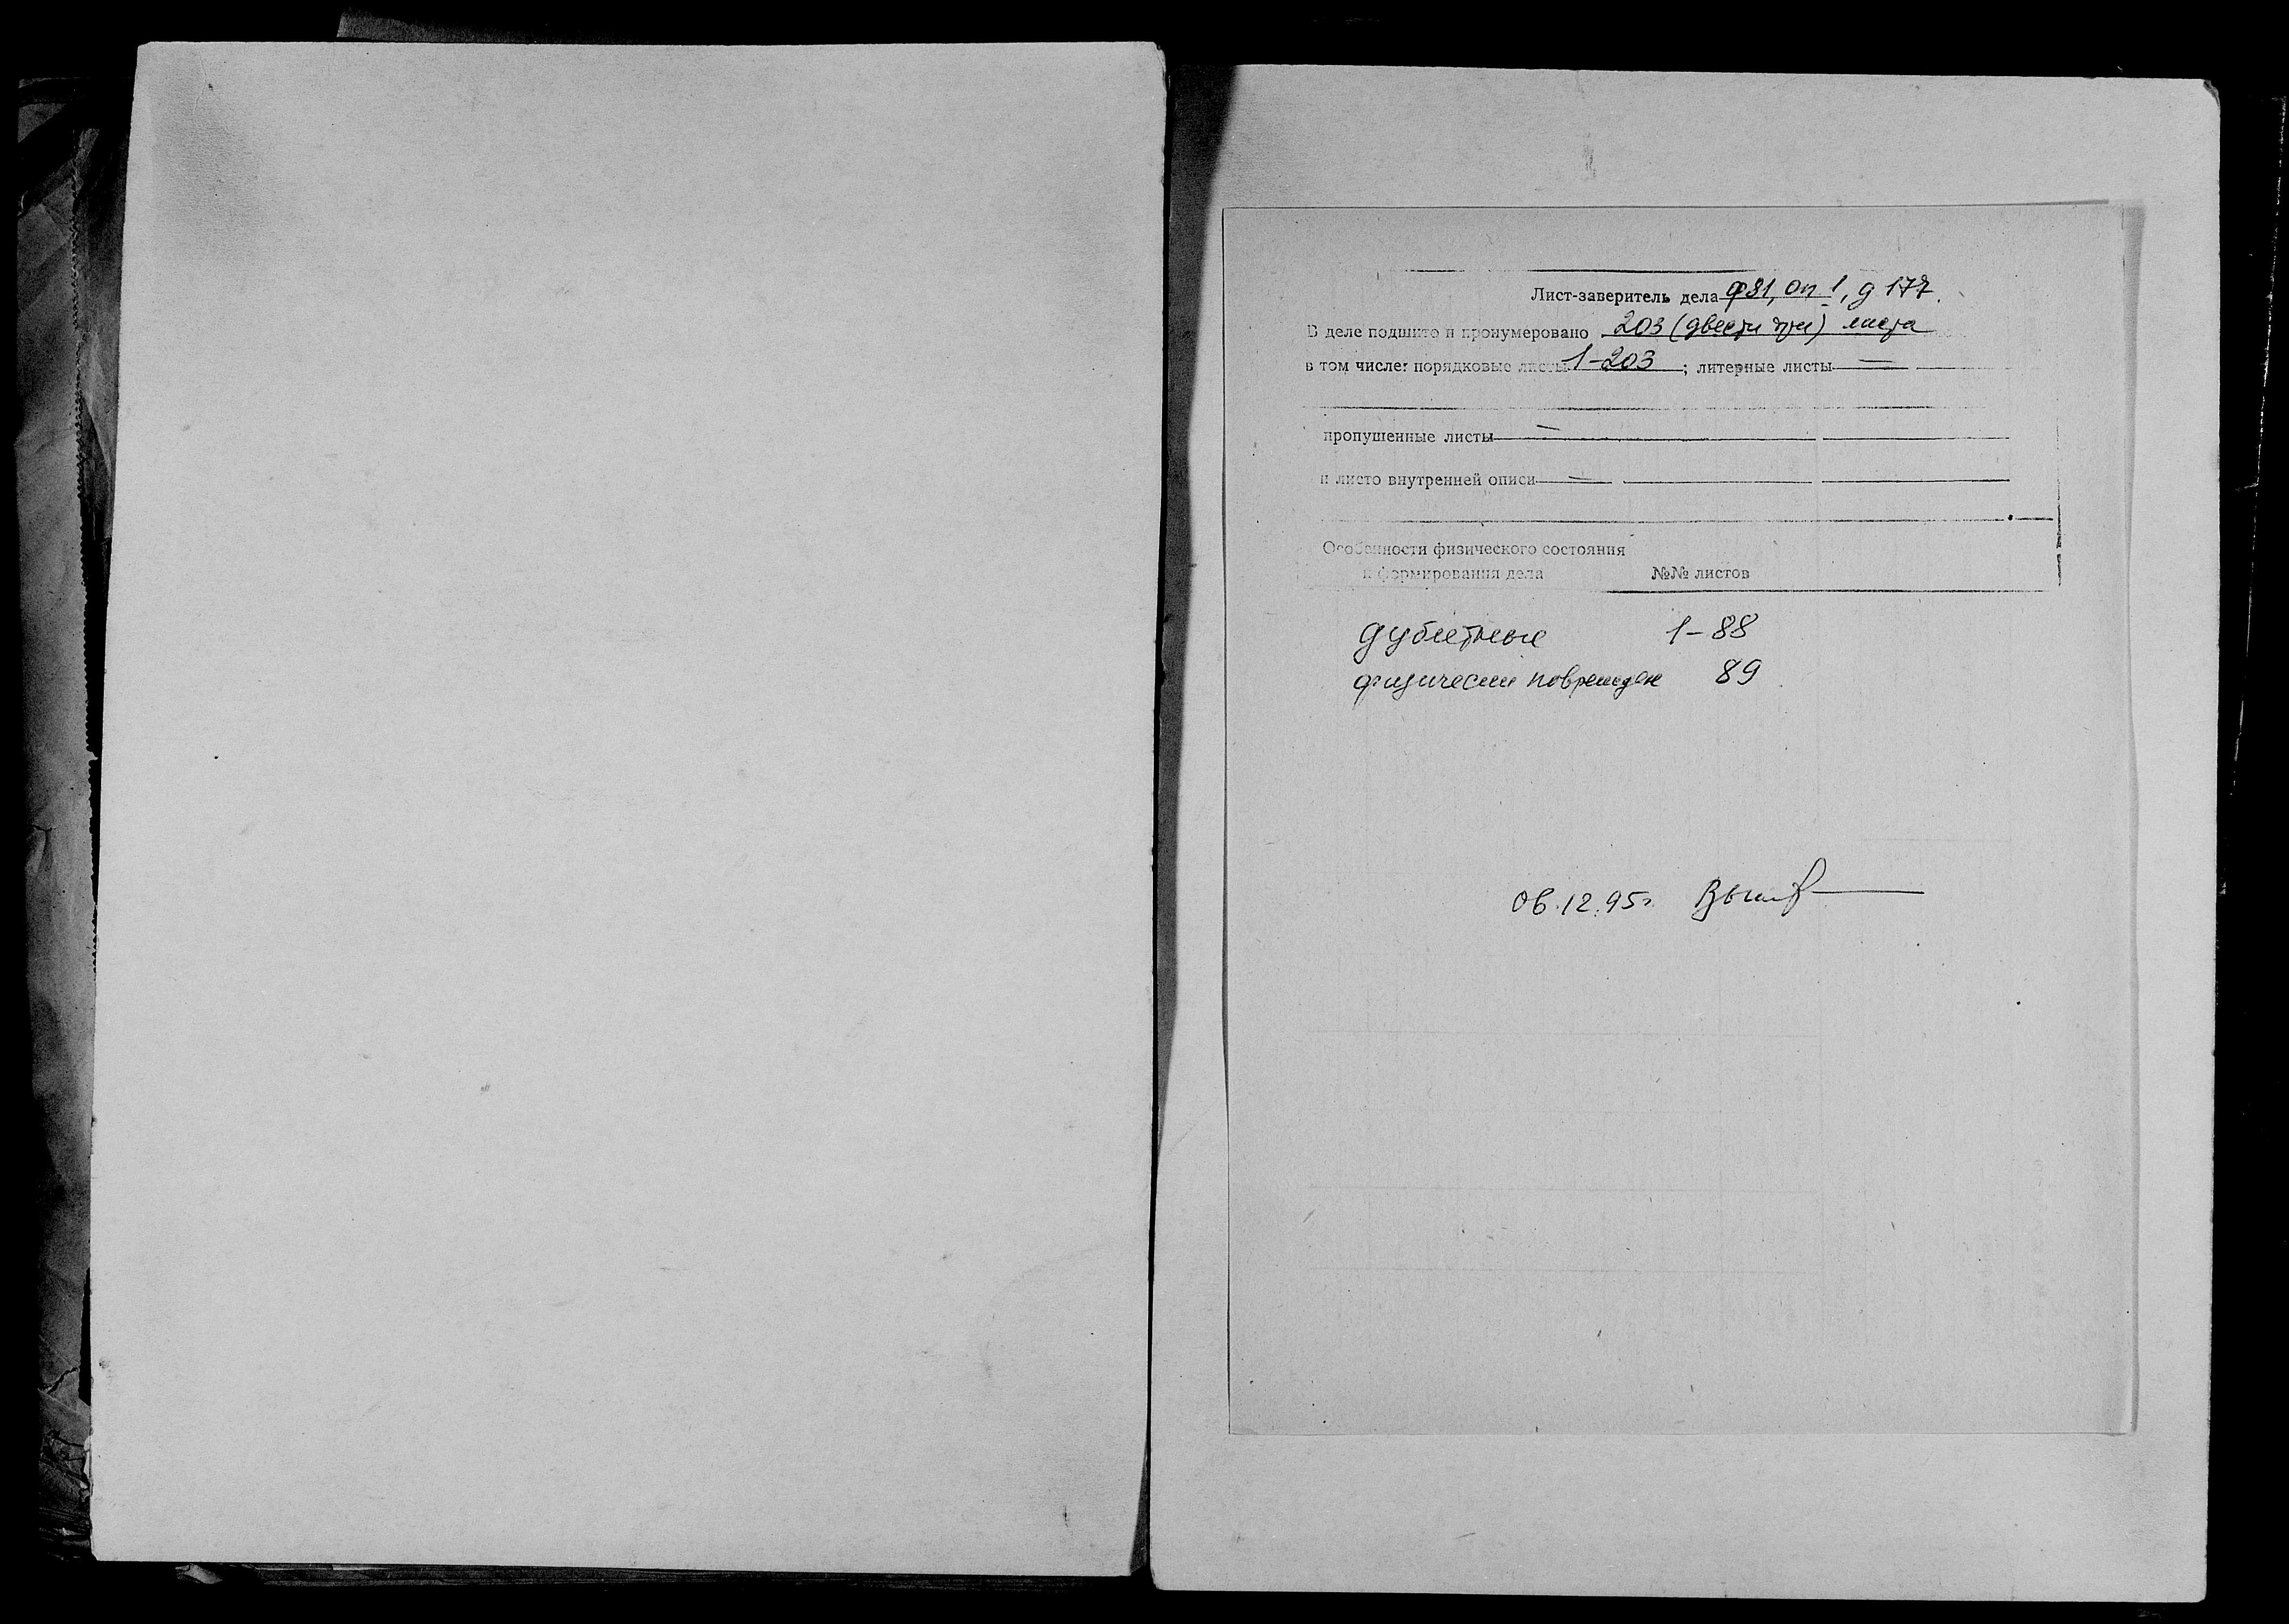 Лист-заверитель дела ф 81, оп 1, д 177.
В деле подшито и пронумеровано 203 (двести три) листа
в том числе: порядковые листы 1-203 ; литерные листы —
пропушенные листы —
и листо внутренней описи —
Особенности физического состояния
и формирования дела №№ листов
дублетные 1-88
физически поврежден 89
06.12.95г.